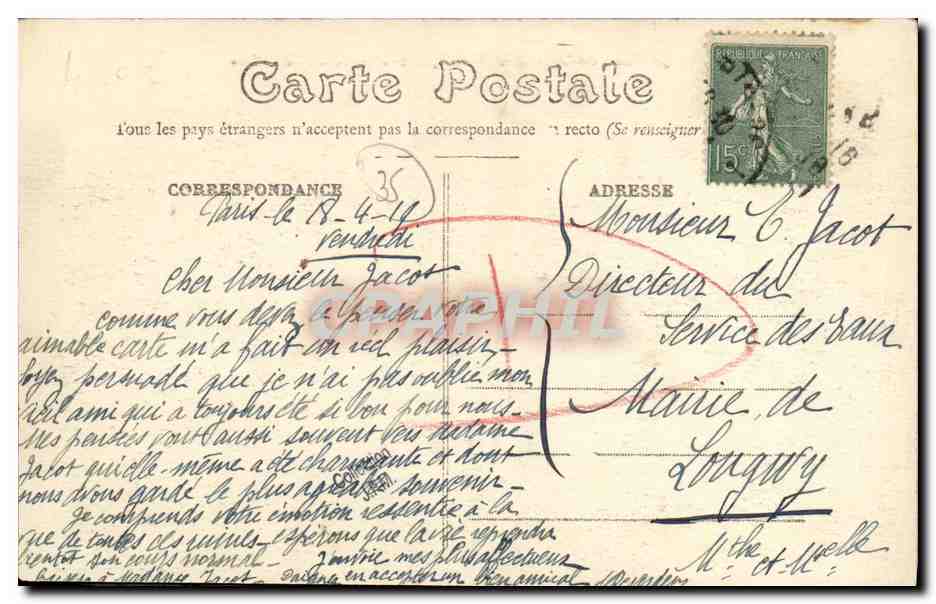 Carte Postale
Tous les pays étrangers n'acceptent pas la correspondance recto (Se renseigner
REPUBLIQUE FRANÇAISE
15c
35
CORRESPONDANCE
Paris-le 18-4-19
Vendredi
Cher Monsieur Jacot
comme vous devez le penser votre
aimable carte m'a fait un réel plaisir-
Soyez persuadé que je n'ai pas oublié mon
ami qui a toujours été si bon pour nous-
Mes pensées vont aussi souvent vers madame
Jacot qu'elle-même a été charmante et dont
nous avons gardé le plus agréable souvenir-
Je comprends votre émotion ressentie à la
vue de toutes ces ruines-espérons que la vie reprendra
bientôt son cours normal- J'envoie mes plus affectueux
à Madame Jacot en acceptez un bien amical
ADRESSE
Monsieur E. Jacot
Directeur du
Service des Eaux
Mairie de
Longwy
et Melle
CPAPHIL
Collection